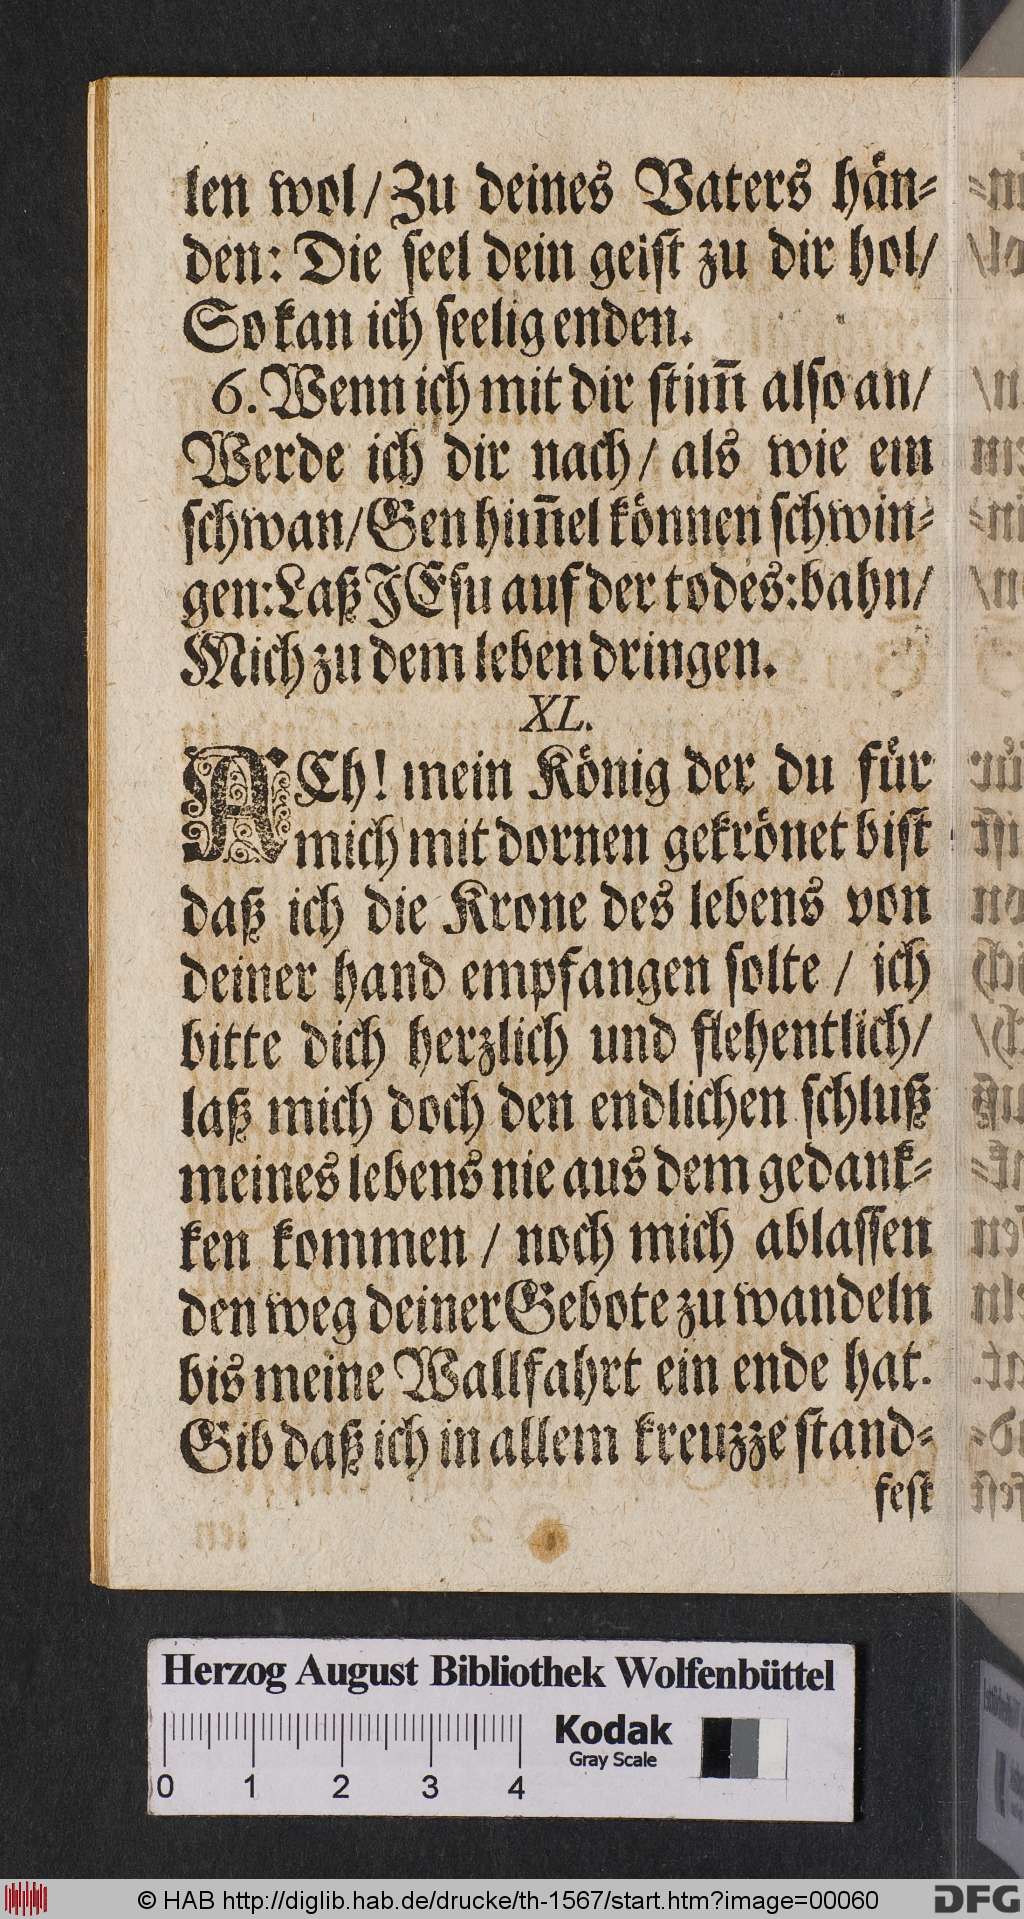 len wol/ Zu deines Vaters hän-
den: Die seel dein geist zu dir hol/
So kan ich seelig enden.
6. Wenn ich mit dir stim̅ also an/
Werde ich dir nach/ als wie ein
schwan/ Gen him̅el können schwin-
gen: Laß JEsu auf der todes:bahn/
Mich zu dem leben dringen.
XL.
ACh! mein König der du fuͤr
mich mit dornen gekrönet bist
daß ich die Krone des lebens von
deiner hand empfangen solte / ich
bitte dich herzlich und flehentlich/
laß mich doch den endlichen schluß
meines lebens nie aus dem gedank-
ken kommen / noch mich ablassen
den weg deiner Gebote zu wandeln
bis meine Wallfahrt ein ende hat.
Gib daß ich in allem kreuzze stand-
fest
Herzog August Bibliothek Wolfenbüttel
0 1 2 3 4
Kodak
Gray Scale
© HAB http://diglib.hab.de/drucke/th-1567/start.htm?image=00060
DFG